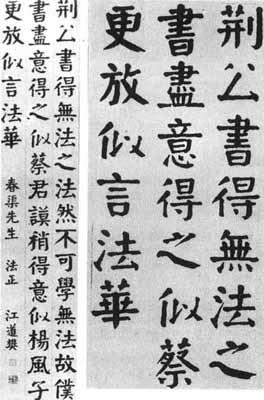 荆公書得無法之
書盡意得之似蔡
更放似言法華
荆公書得無法之法然不可學無法故僕
書盡意得之似蔡君謨稍得意似楊風子
更放似言法華 春渠先生 法正 江道樊